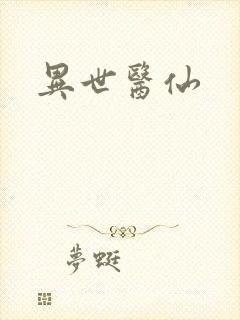 異世醫仙
夢蜓